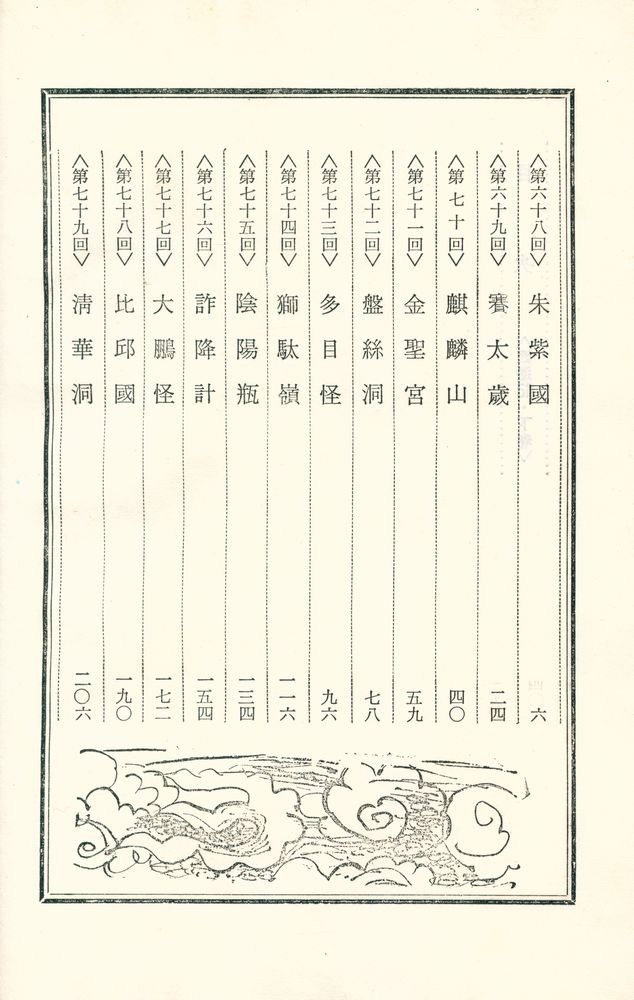 〈第六十八回〉 朱紫國 六
〈第六十九回〉 賽太歲 二四
〈第七十回〉 麒麟山 四〇
〈第七十一回〉 金聖宮 五九
〈第七十二回〉 盤絲洞 七八
〈第七十三回〉 多目怪 九六
〈第七十四回〉 獅駄嶺 一一六
〈第七十五回〉 陰陽瓶 一三四
〈第七十六回〉 詐降計 一五四
〈第七十七回〉 大鵬怪 一七二
〈第七十八回〉 比邱國 一九〇
〈第七十九回〉 淸華洞 二〇六